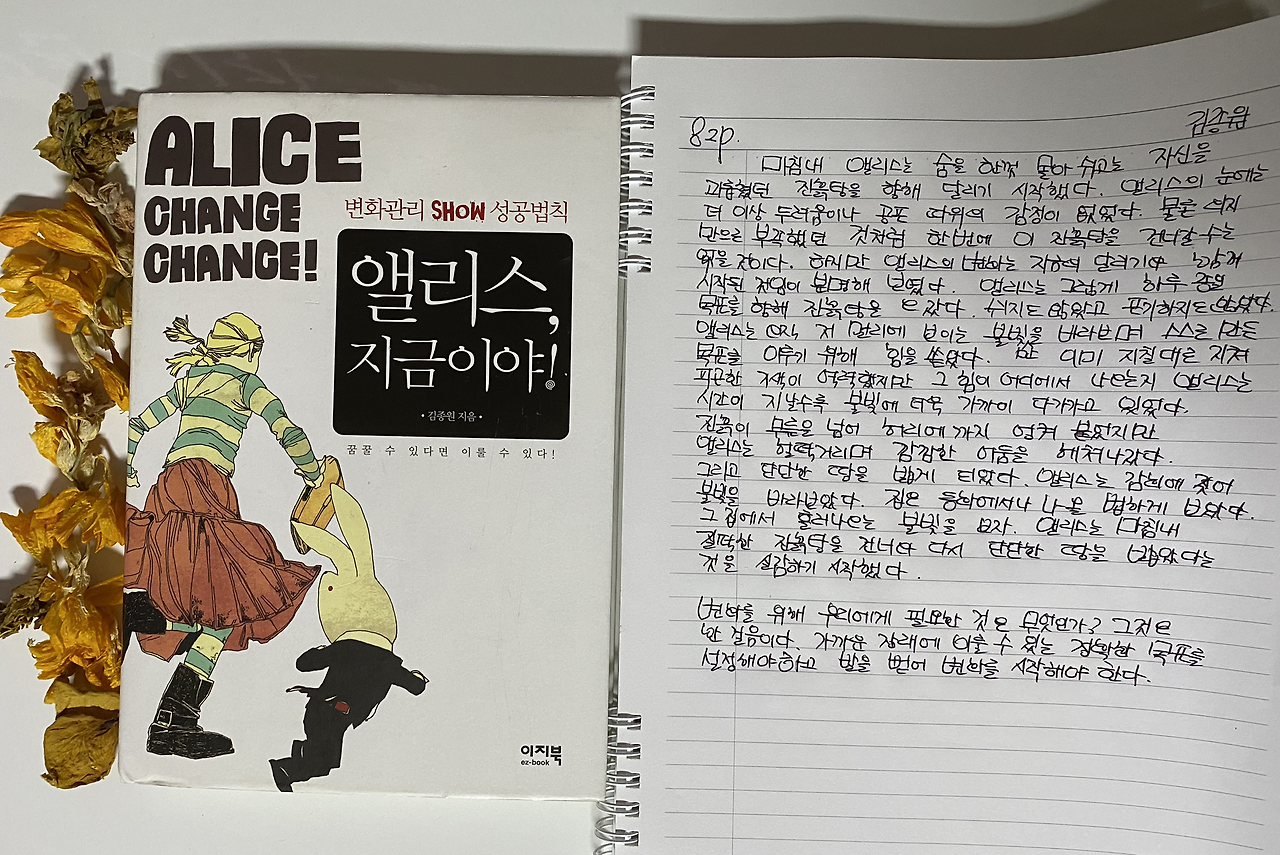 ALICE
CHANGE
CHANGE!
변화관리 SHOW 성공법칙
앨리스,
지금이야!
• 김종원 지음 •
꿈꿀 수 있다면 이룰 수 있다!
이지북
ez-book
김종원
82p.
마침내 앨리스는 숨을 한껏 몰아 쉬고는 자신을
괴롭혔던 진흙탕을 향해 달리기 시작했다. 앨리스의 눈에는
더 이상 두려움이나 공포 따위의 감정이 없었다. 물론 의지
만으로 부족했던 것처럼 한번에 이 진흙탕을 건너갈 수는
없을 것이다. 하지만 앨리스의 변화는 지하의 달리기와 함께
시작된 것임이 분명해 보였다. 앨리스는 그렇게 하루 종일
목표를 향해 진흙탕을 갔다. 쉬지도 않았고 포기하지도 않았다.
앨리스는 오직 저 멀리에 보이는 불빛을 바라보며 스스로 만든
목표를 이루기 위해 힘을 쏟았다. 이미 지칠대로 지쳐
피곤한 기색이 역력했지만 그 힘이 어디에서 나오는지 앨리스는
시간이 지날수록 불빛에 더욱 가까이 다가가고 있었다.
진흙이 무릎을 넘어 허리에까지 엉켜 붙었지만
앨리스는 헐떡거리며 캄캄한 어둠을 헤쳐나갔다.
그리고 단단한 땅을 밟게 되었다. 앨리스는 감회에 젖어
불빛을 바라보았다. 집은 동화에서나 나올 법하게 보였다.
그 집에서 흘러나오는 불빛을 보자. 앨리스는 마침내
질퍽한 진흙탕을 건너와 다시 단단한 땅을 밟았다는
것을 실감하기 시작했다.
변화를 위해 우리에게 필요한 것은 무엇인가? 그것은
한 걸음이다. 가까운 장래에 이룰 수 있는 정확한 목표를
설정해야하고 발을 뻗어 변화를 시작해야 한다.